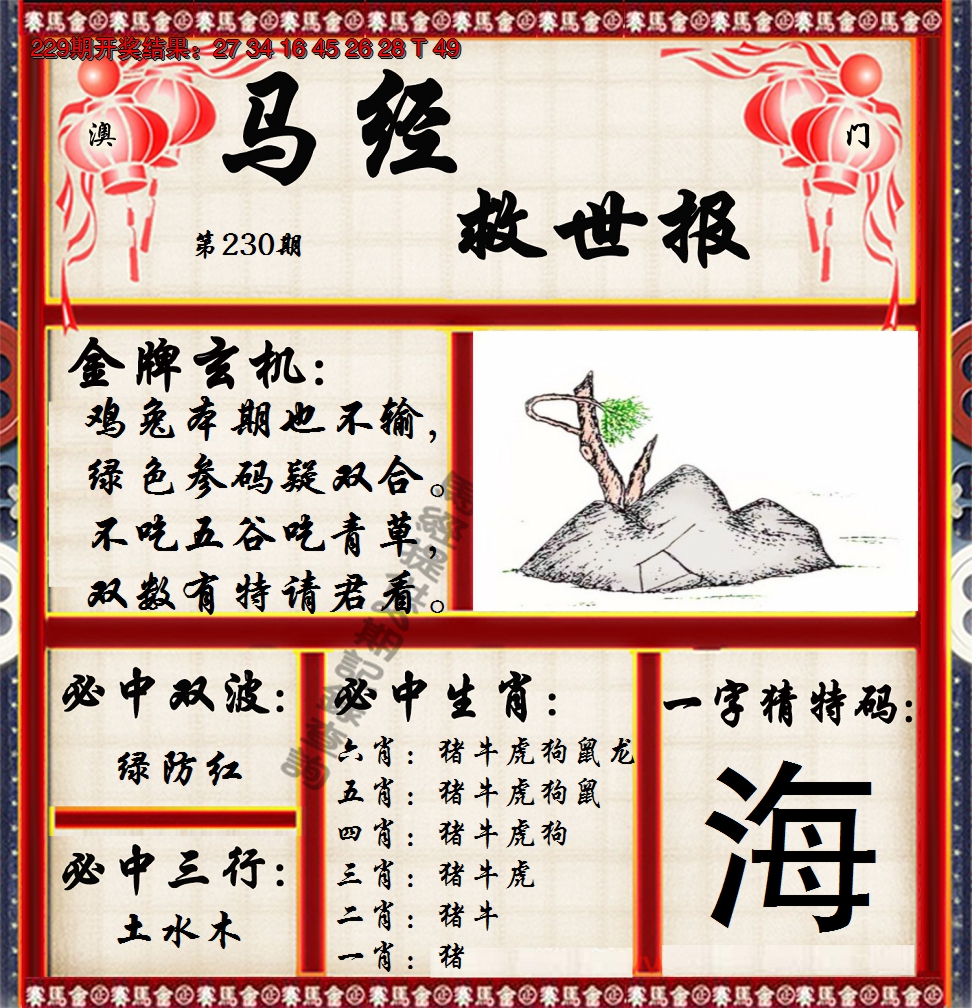 賽馬會
229期开奖结果：27 34 16 45 26 28 T 49
澳
门
马经
救世报
第230期
金牌玄机：
鸡兔本期也不输，
绿色参码疑双合。
不吃五谷吃青草，
双数有特请君看。
必中双波：
绿防红
必中三行：
土水木
必中生肖：
六肖：猪牛虎狗鼠龙
五肖：猪牛虎狗鼠
四肖：猪牛虎狗
三肖：猪牛虎
二肖：猪牛
一肖：猪
一字猜特码：
海
賽馬會